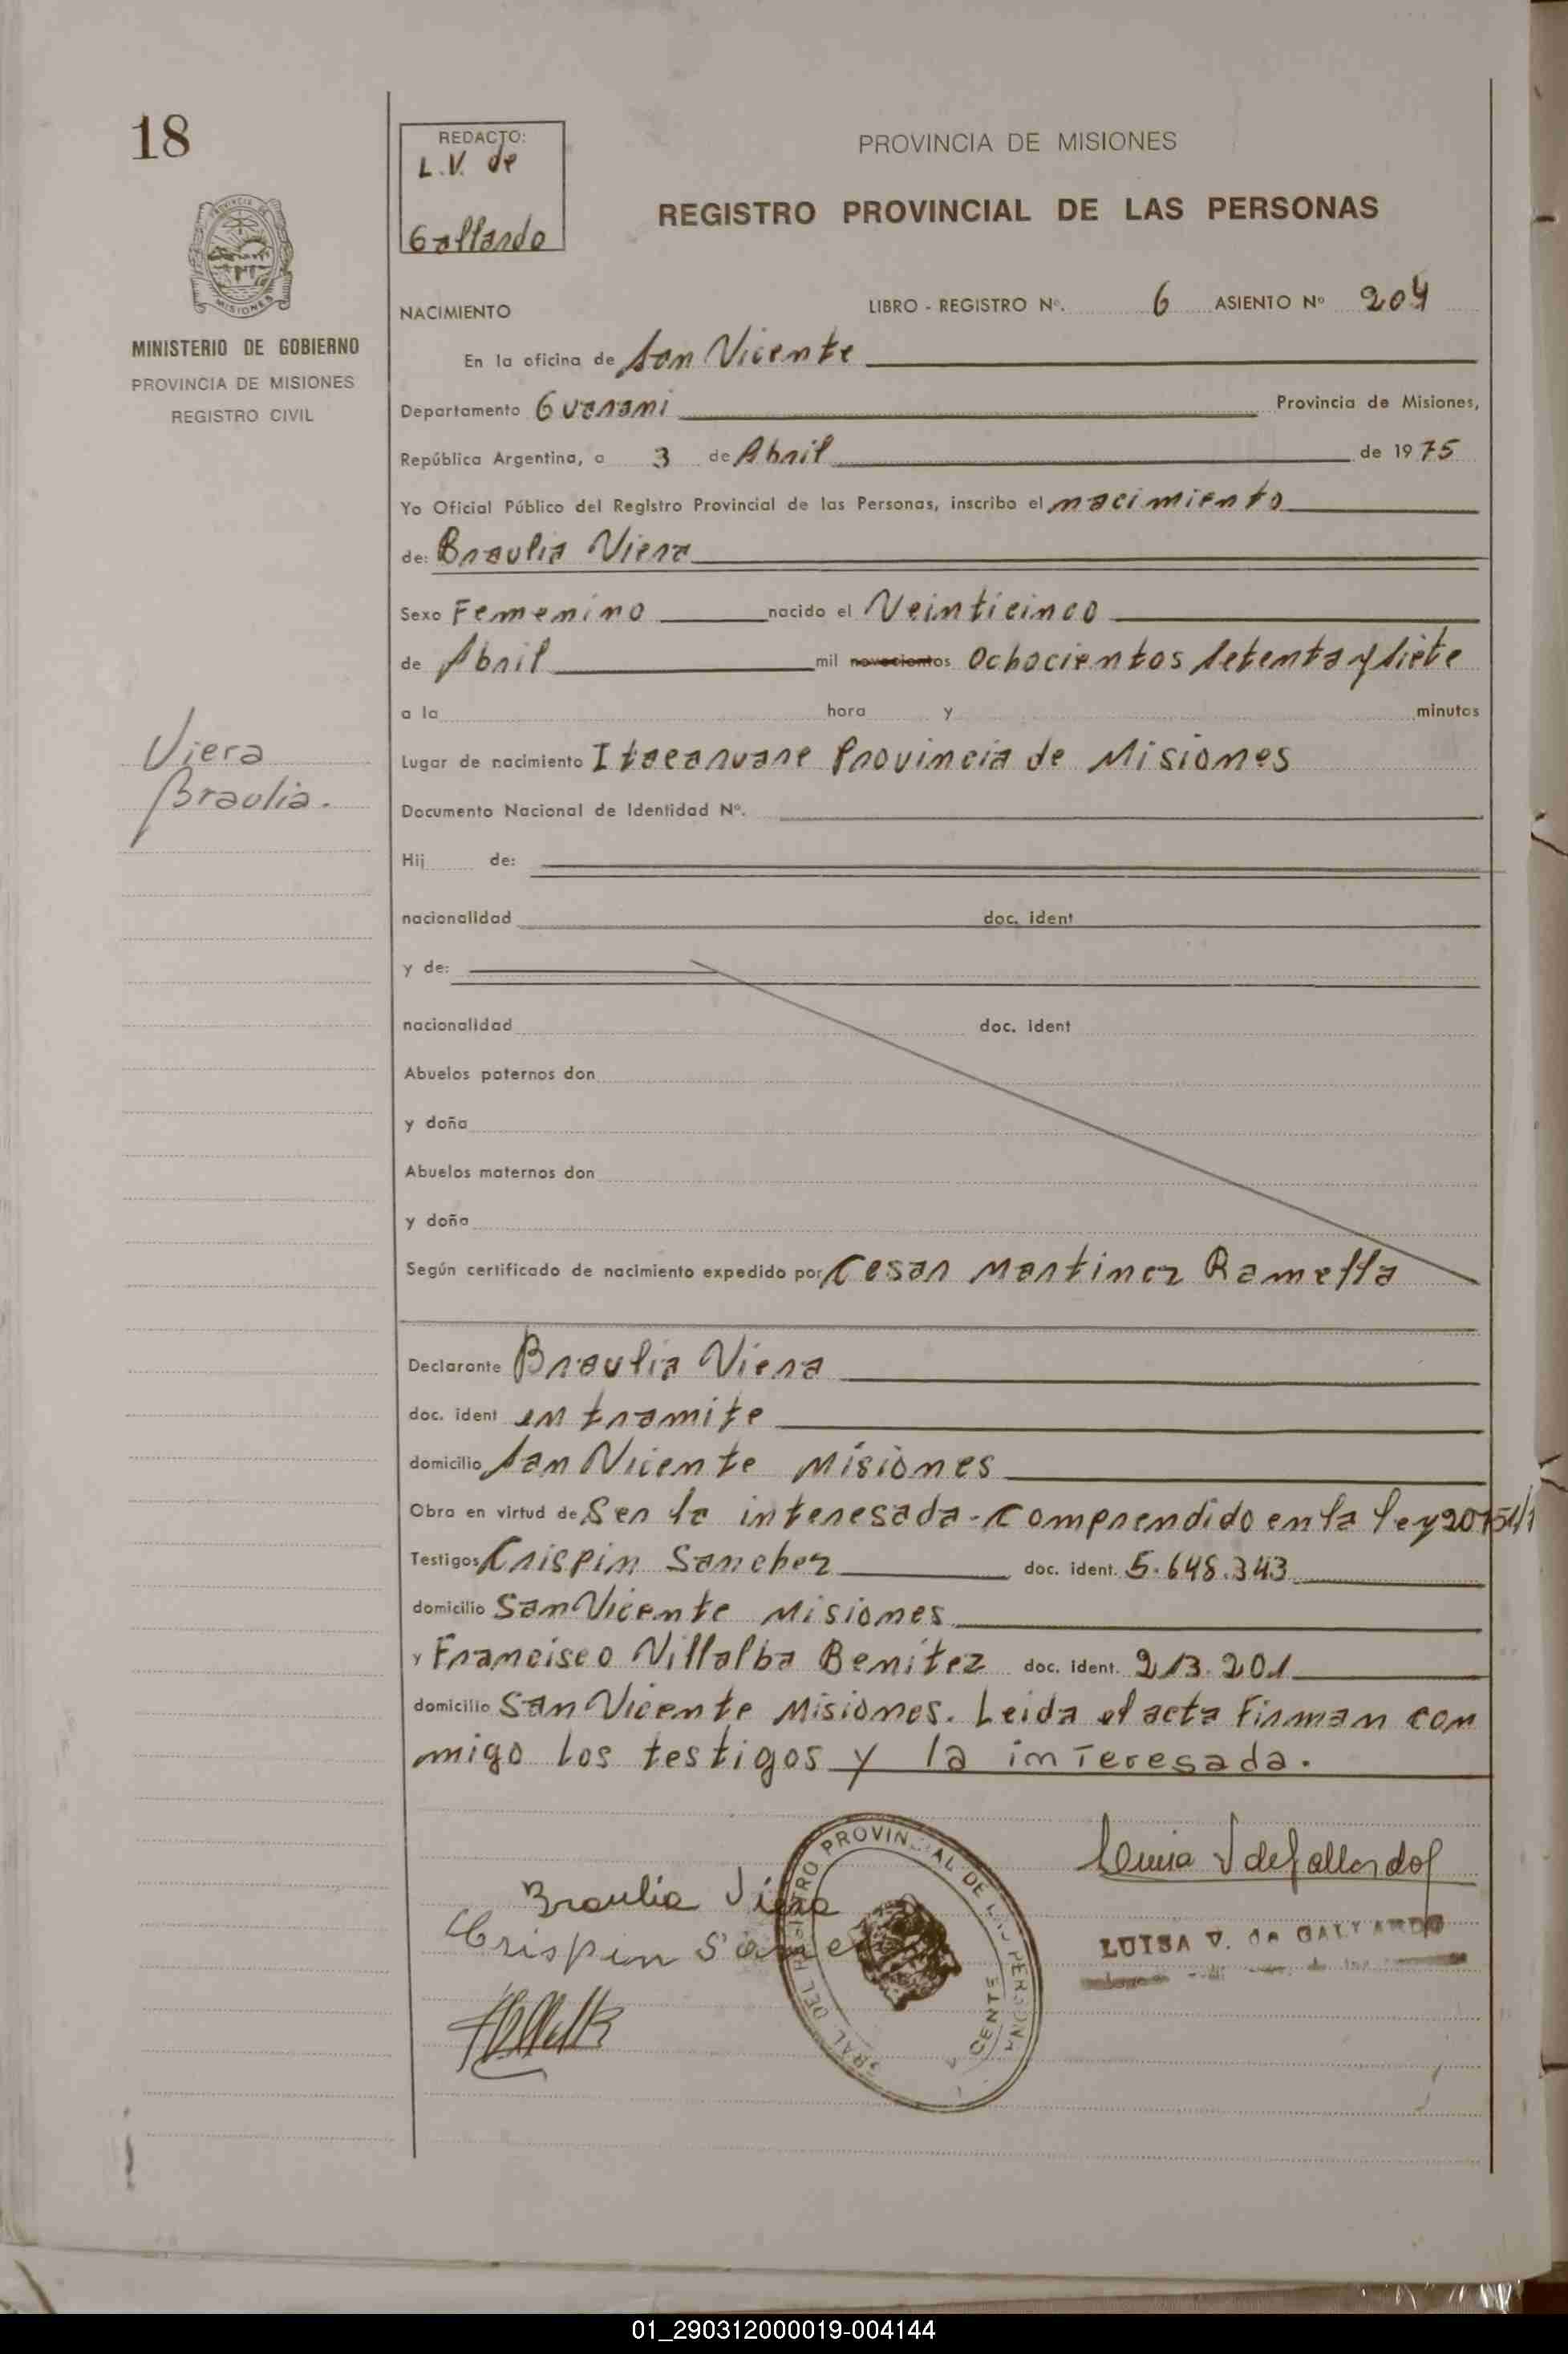 18
REDACTO:
L.V. de
Gallardo
PROVINCIA DE MISIONES
REGISTRO PROVINCIAL DE LAS PERSONAS
PROVINCIA DE
MISIONES
MINISTERIO DE GOBIERNO
PROVINCIA DE MISIONES
REGISTRO CIVIL
NACIMIENTO LIBRO - REGISTRO Nº. 6 ASIENTO Nº 204
En la oficina de San Vicente
Departamento Guarani Provincia de Misiones,
República Argentina, a 3 de Abril de 1975
Yo Oficial Público del Registro Provincial de las Personas, inscribo el nacimiento
de: Braulia Viera
Sexo Femenino nacido el Veinticinco
de Abril mil novecientos Ochocientos Setenta y Siete
a la hora y minutos
Viera
Braulia.
Lugar de nacimiento Itacaruare Provincia de Misiones
Documento Nacional de Identidad Nº.
Hij de:
nacionalidad doc. ident
y de:
nacionalidad doc. ident
Abuelos paternos don
y doña
Abuelos maternos don
y doña
Según certificado de nacimiento expedido por Cesar Martinez Ramella
Declarante Braulia Viera
doc. ident en tramite
domicilio San Vicente Misiones
Obra en virtud de Ser la interesada - Comprendido en la ley
Testigos Crispin Sanchez doc. ident. 5.648.343
domicilio San Vicente Misiones
y Francisco Villalba Benitez doc. ident. 213.201
domicilio San Vicente Misiones. Leida el acta Firman con
migo los testigos y la interesada.
Braulia Viera
Crispin
DEL REGISTRO PROVINCIAL DE LAS PERSONAS
LUISA V. de GALLARDO
01_290312000019-004144